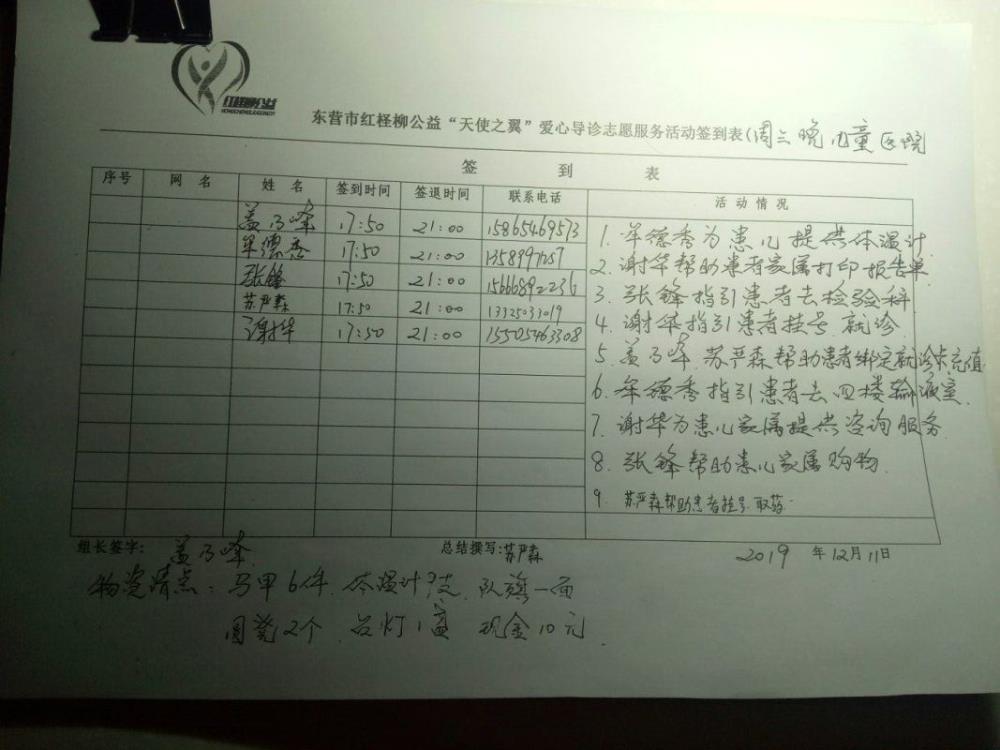 红柽柳公益
东营市红柽柳公益“天使之翼”爱心导诊志愿服务活动签到表(周三晚儿童医院
签 到 表
序号 网 名 姓 名 签到时间 签退时间 联系电话 活 动 情 况
盖乃峰 17:50 21:00 15865469573
牟德秀 17:50 21:00
张锋 17:50 21:00 15666892236
苏严森 17:50 21:00 13325033019
谢华 17:50 21:00 15505463308
1. 牟德秀为患儿提供体温计
2. 谢华帮助患者家属打印报告单
3. 张锋指引患者去检验科
4. 谢华指引患者挂号 就诊
5. 盖乃峰 苏严森帮助患者绑定就诊卡充值
6. 牟德秀指引患者去四楼输液室.
7. 谢华为患儿家属提供咨询服务
8. 张锋帮助患儿家属购物.
9. 苏严森帮助患者挂号.取药.
组长签字: 盖乃峰 总结撰写:苏严森 2019 年12月11日
物资清点: 马甲6件. 体温计 支. 队旗一面
圆凳2个. 台灯1盏 现金10元.